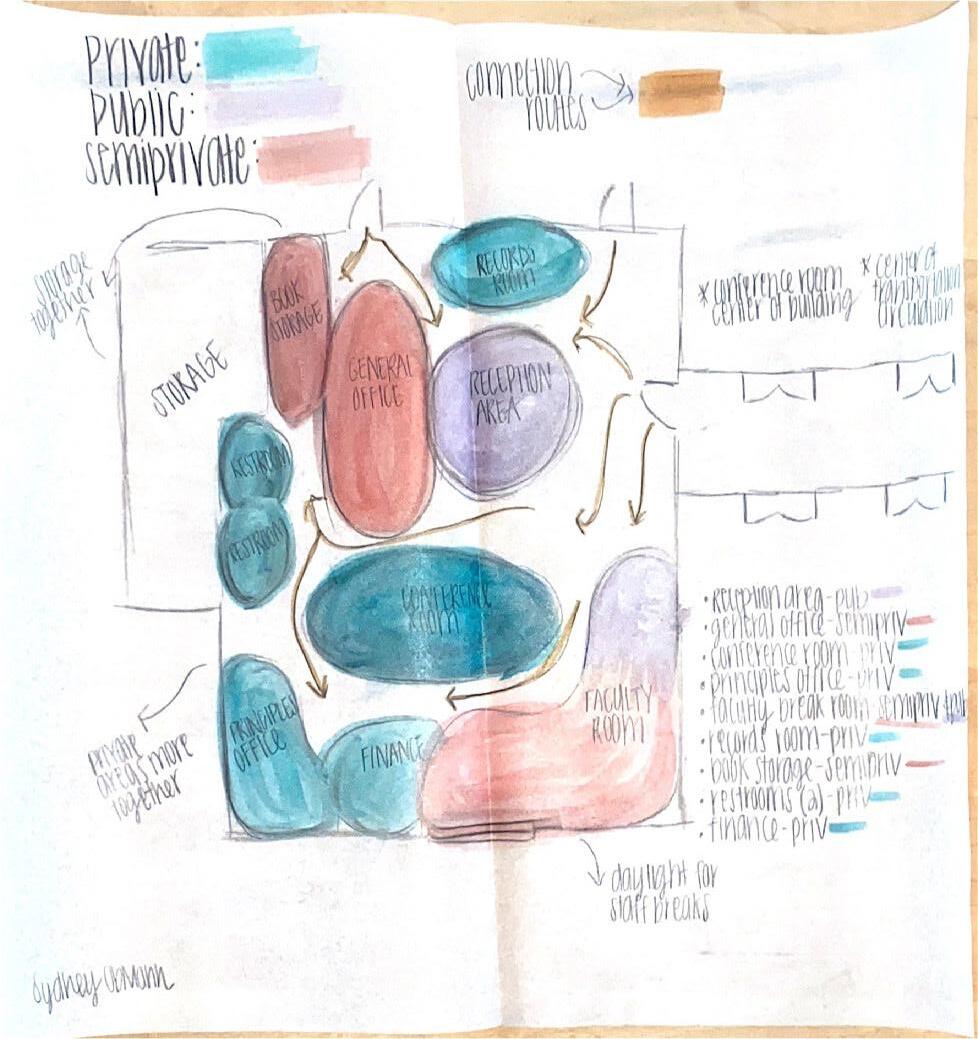 private:
public:
semiprivate:
connection
routes
storage
together
STORAGE
BOOK
STORAGE
GENERAL
OFFICE
RECORDS
ROOM
RECEPTION
AREA
* conference room
center of building
* center of
transportation
circulation
RESTROOM
RESTROOM
CONFERENCE
ROOM
PRINCIPLES
OFFICE
FINANCE
FACULTY
ROOM
private
areas more
together
• reception area-pub
• general office-semipriv
• conference room-priv
• principles office-priv
• faculty break room-semipriv/pub
• records room-priv
• book storage-semipriv
• restrooms (2)-priv
• finance-priv
daylight for
staff breaks
Sydney